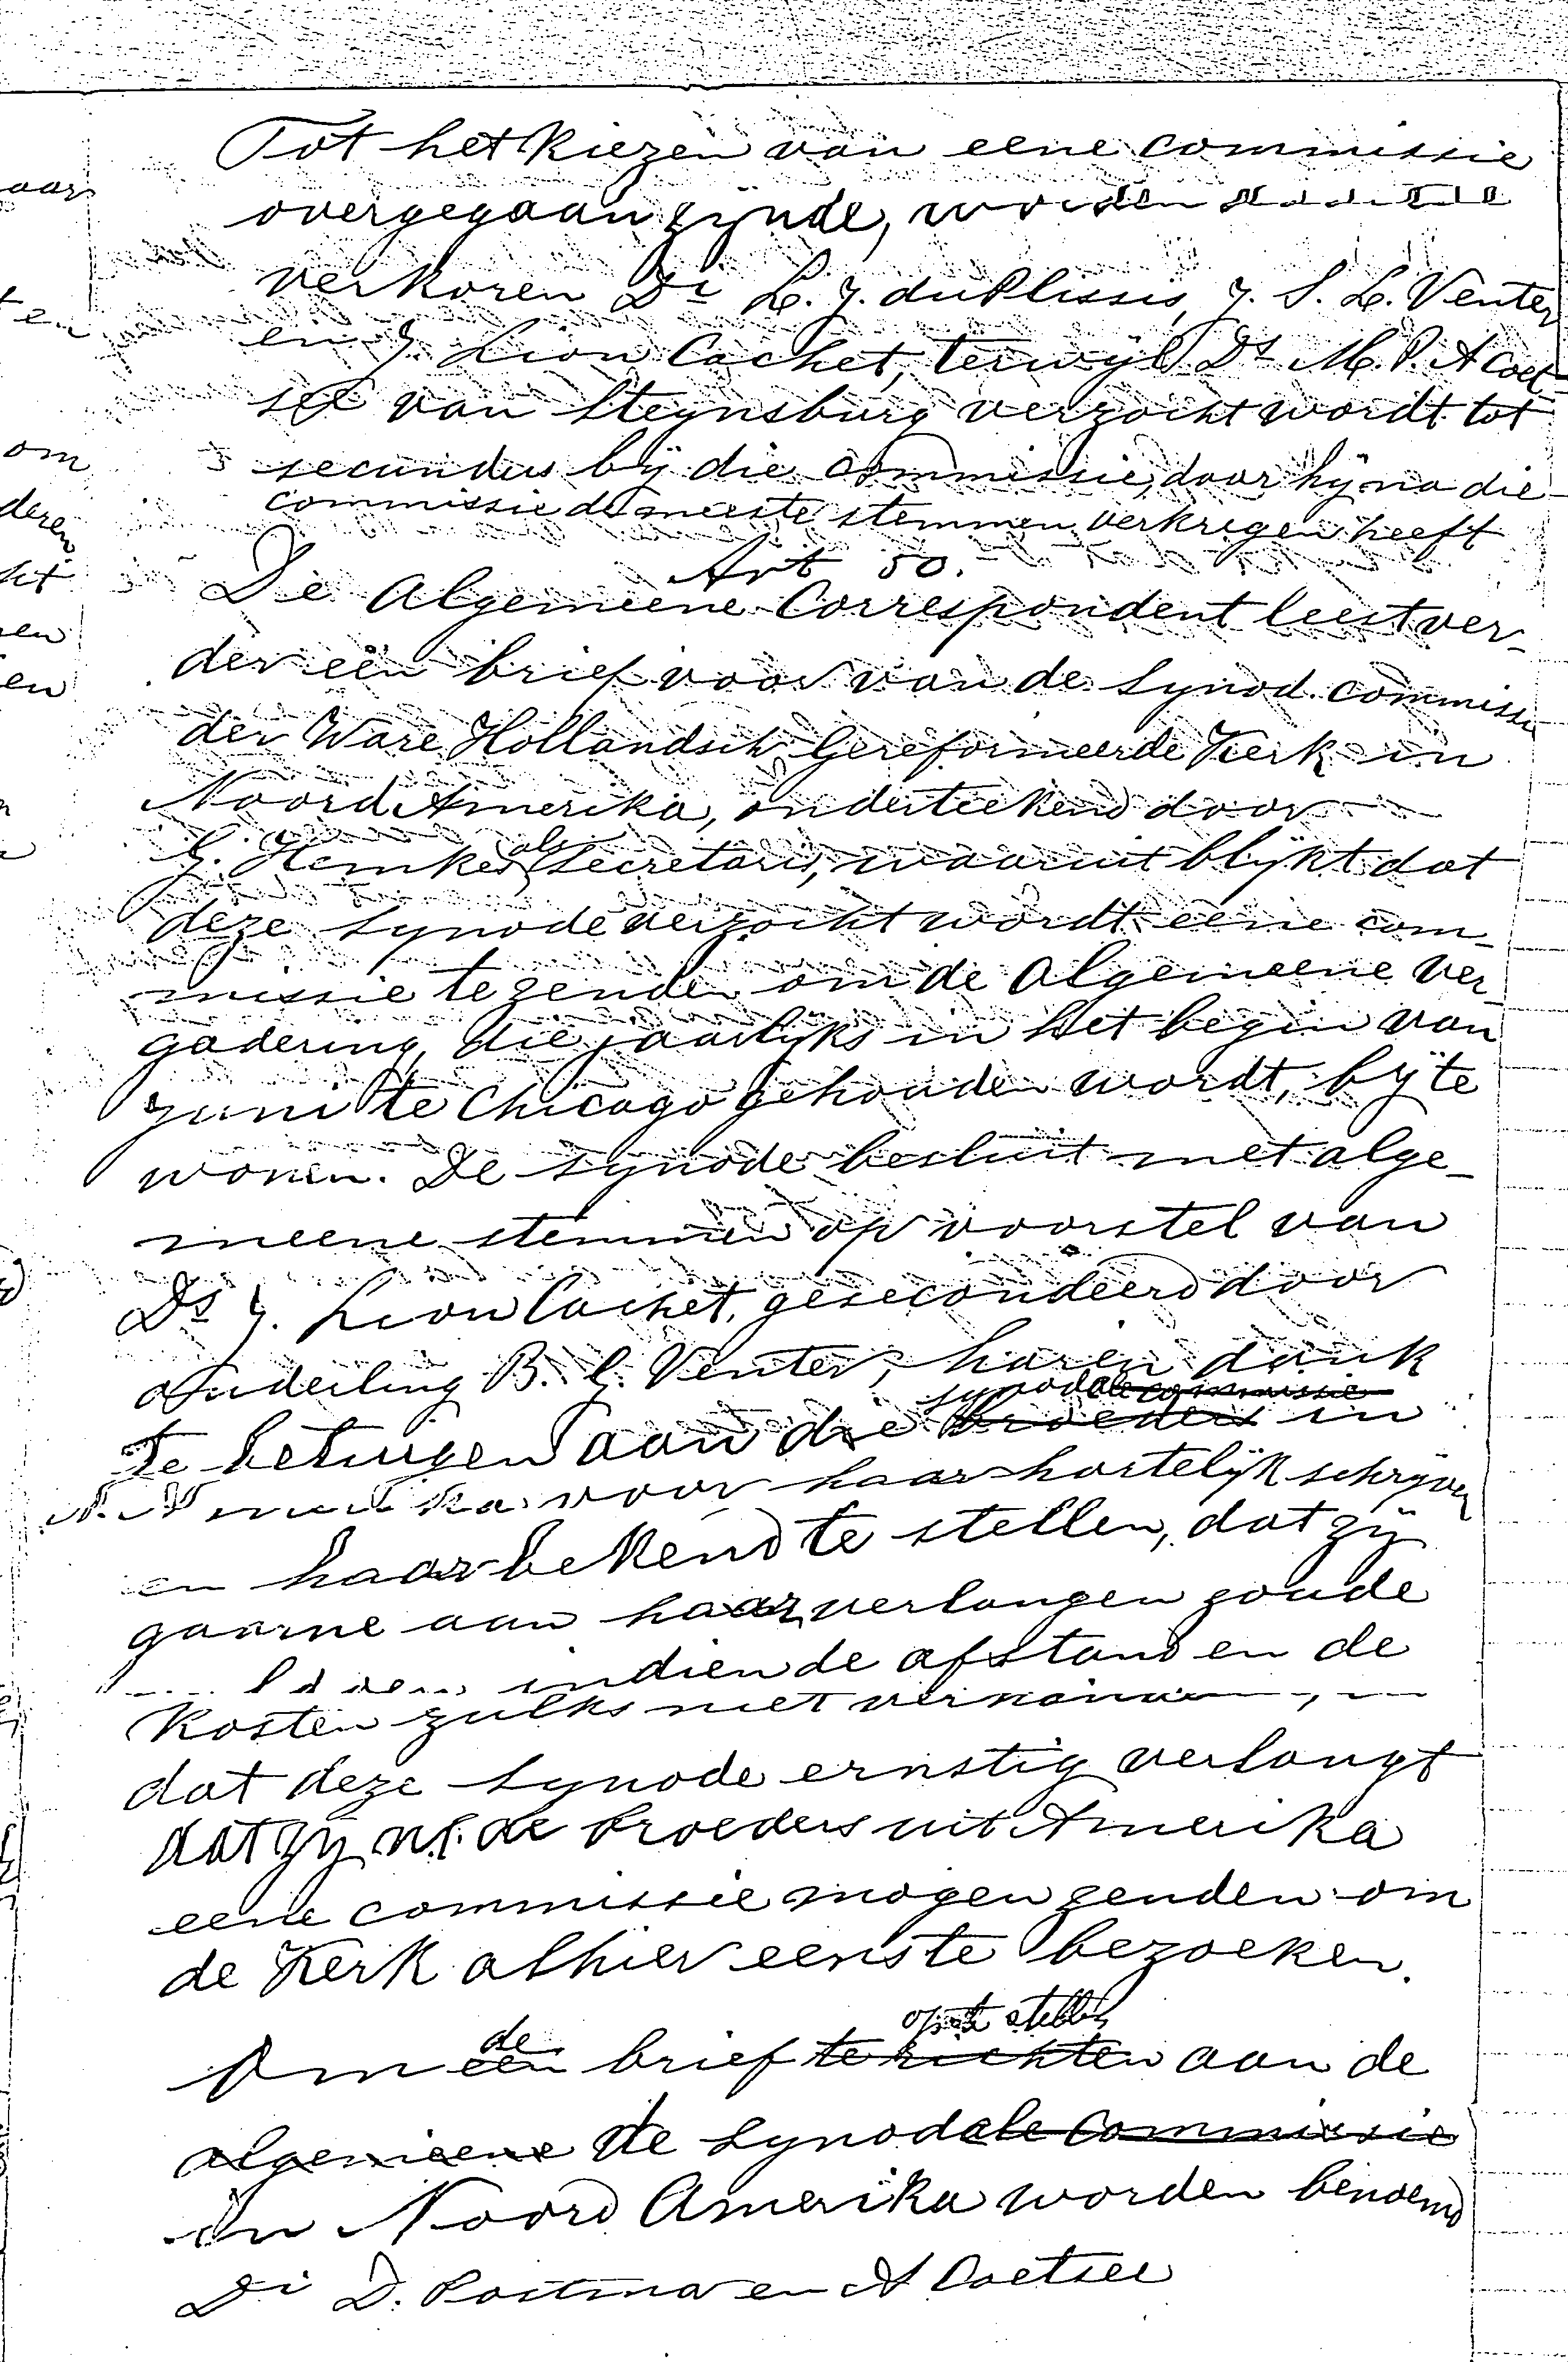 Tot het kiezen van eene commissie
overgegaan zijnde, worden
verkoren Di L. J. du Plessis, J. S. L. Venter
en J. Lion Cachet, terwijl Ds M. P. A Coet-
see van Steynsburg verzocht wordt tot
secundus bij die Commissie, daar hij na die
commissie de meeste stemmen verkregen heeft
Art 50.
De Algemeene Correspondent leest ver-
der een brief voor van de Synod. commissie
der Ware Hollandsch Gereformeerde Kerk in
Noord Amerika, onderteekend door
G. Hemkes als Secretaris, waaruit blijkt dat
deze Synode verzocht wordt eene com-
missie te zenden om de Algemeene Ver-
gadering, die jaarlijks in het begin van
Juni te Chicago gehouden wordt, bij te
wonen. De Synode besluit met alge-
meene stemmen op voorstel van
Ds J. Lion Cachet, gesecondeerd door
Ouderling B. G. Venter, haren dank
synodale commissie
te betuigen aan die broeders in
N. Amerika voor haar hartelijk schrijven
en haar bekend te stellen, dat zij
gaarne aan haar verlangen zoude
indien de afstand en de
kosten zulks niet
dat deze Synode ernstig verlangt
dat zij nl. de broeders uit Amerika
eene commissie mogen zenden om
de Kerk alhier eens te bezoeken.
de op te stellen
Om een brief te richten aan de
algemeene de Synodale Commissie
in Noord Amerika worden benoemd
Di D. Postma en A Coetsee
aar
ten
om
deren
ht
en
en